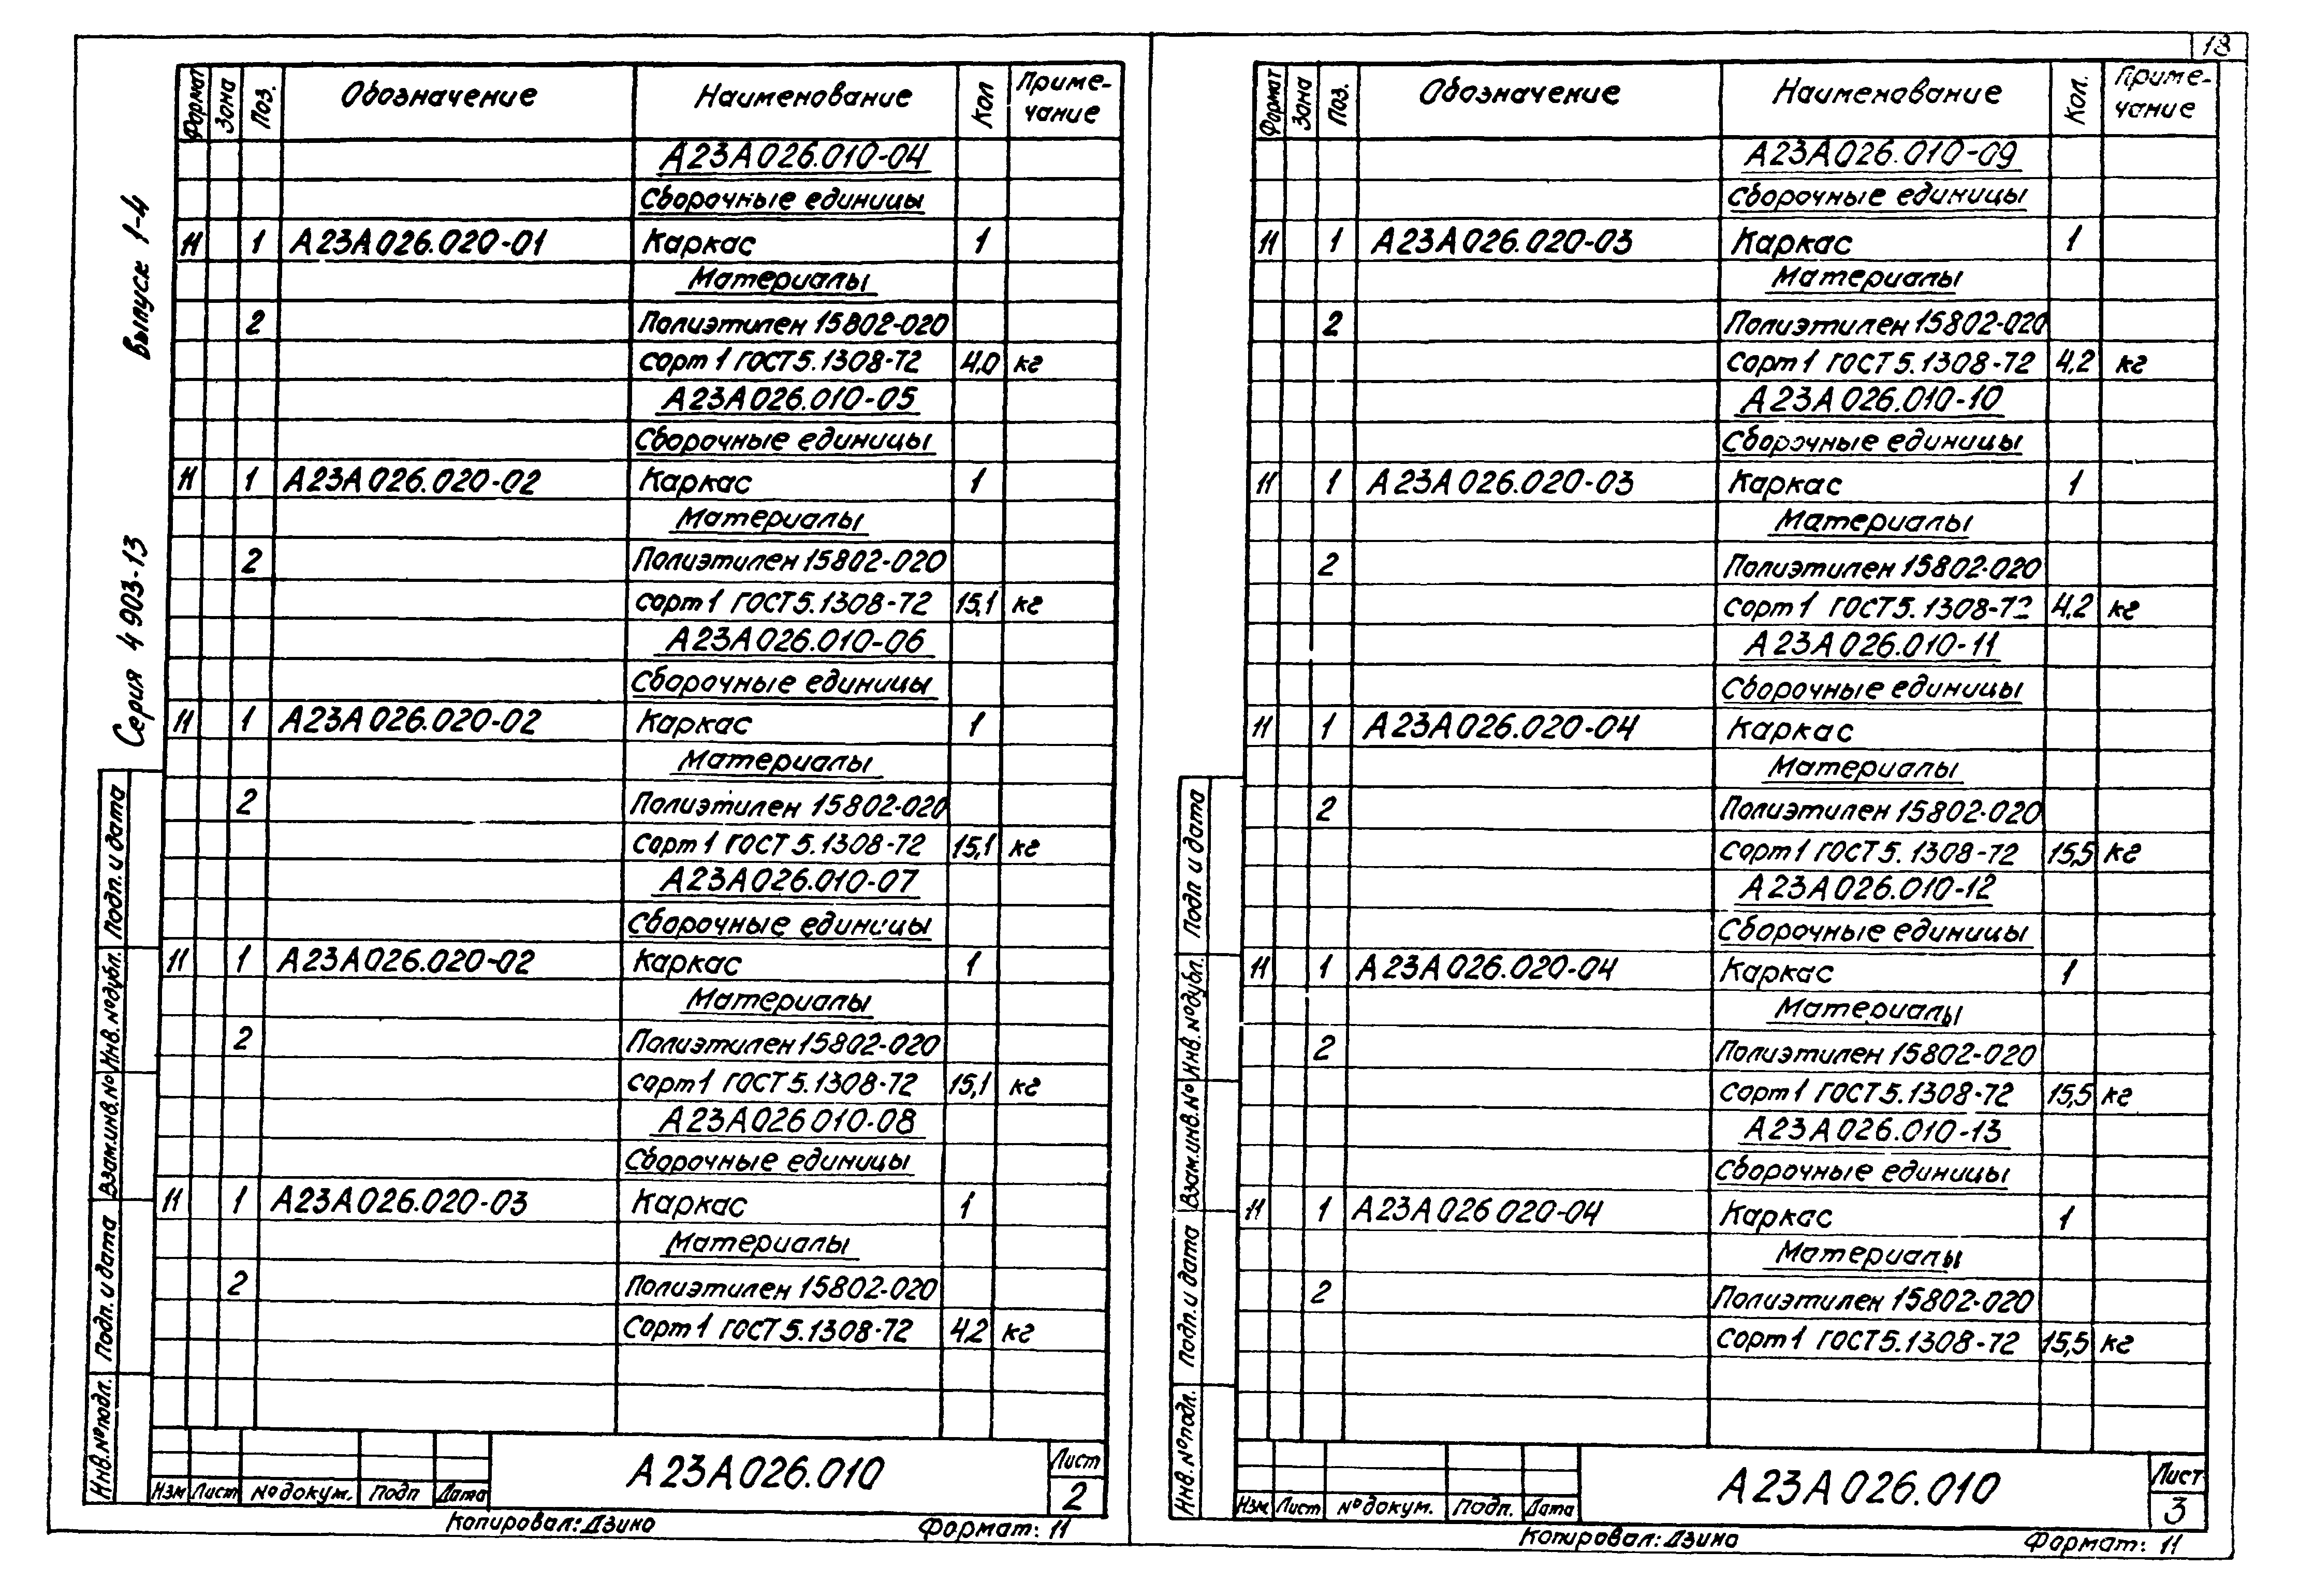 18
Серия 4 903-13 Выпуск 1-4
Формат Зона Поз. Обозначение Наименование Кол Примечание
А23А026.010-04
Сборочные единицы
11 1 А23А026.020-01 Каркас 1
Материалы
2 Полиэтилен 15802-020
сорт 1 ГОСТ 5.1308-72 4,0 кг
А23А026.010-05
Сборочные единицы
11 1 А23А026.020-02 Каркас 1
Материалы
2 Полиэтилен 15802-020
сорт 1 ГОСТ 5.1308-72 15,1 кг
А23А026.010-06
Сборочные единицы
11 1 А23А026.020-02 Каркас 1
Материалы
2 Полиэтилен 15802-020
сорт 1 ГОСТ 5.1308-72 15,1 кг
А23А026.010-07
Сборочные единицы
11 1 А23А026.020-02 Каркас 1
Материалы
2 Полиэтилен 15802-020
сорт 1 ГОСТ 5.1308-72 15,1 кг
А23А026 010-08
Сборочные единицы
11 1 А23А026.020-03 Каркас 1
Материалы
2 Полиэтилен 15802-020
сорт 1 ГОСТ 5.1308-72 4,2 кг
Инв.№подл. Подп. и дата Взам.инв.№ Инв.№дубл. Подп. и дата
Изм Лист № докум. Подп Дата
А23А026.010
Лист
2
Копировал: Дзино Формат: 11
Формат Зона Поз. Обозначение Наименование Кол. Примечание
А23А026.010-09
Сборочные единицы
11 1 А23А026.020-03 Каркас 1
Материалы
2 Полиэтилен 15802-020
сорт 1 ГОСТ 5.1308-72 4,2 кг
А23А026.010-10
Сборочные единицы
11 1 А23А026.020-03 Каркас 1
Материалы
2 Полиэтилен 15802-020
сорт 1 ГОСТ 5.1308-72 4,2 кг
А23А026.010-11
Сборочные единицы
11 1 А23А026.020-04 Каркас
Материалы
2 Полиэтилен 15802-020
сорт 1 ГОСТ 5.1308-72 15,5 кг
А23А026.010-12
Сборочные единицы
11 1 А23А026.020-04 Каркас 1
Материалы
2 Полиэтилен 15802-020
сорт 1 ГОСТ 5.1308-72 15,5 кг
А23А026.010-13
Сборочные единицы
11 1 А23А026 020-04 Каркас 1
Материалы
2 Полиэтилен 15802-020
сорт 1 ГОСТ 5.1308-72 15,5 кг
Инв.№подл. Подп. и дата Взам.инв.№ Инв.№дубл. Подп и дата
Изм Лист № докум. Подп. Дата
А23А026.010
Лист
3
Копировал: Дзино Формат: 11